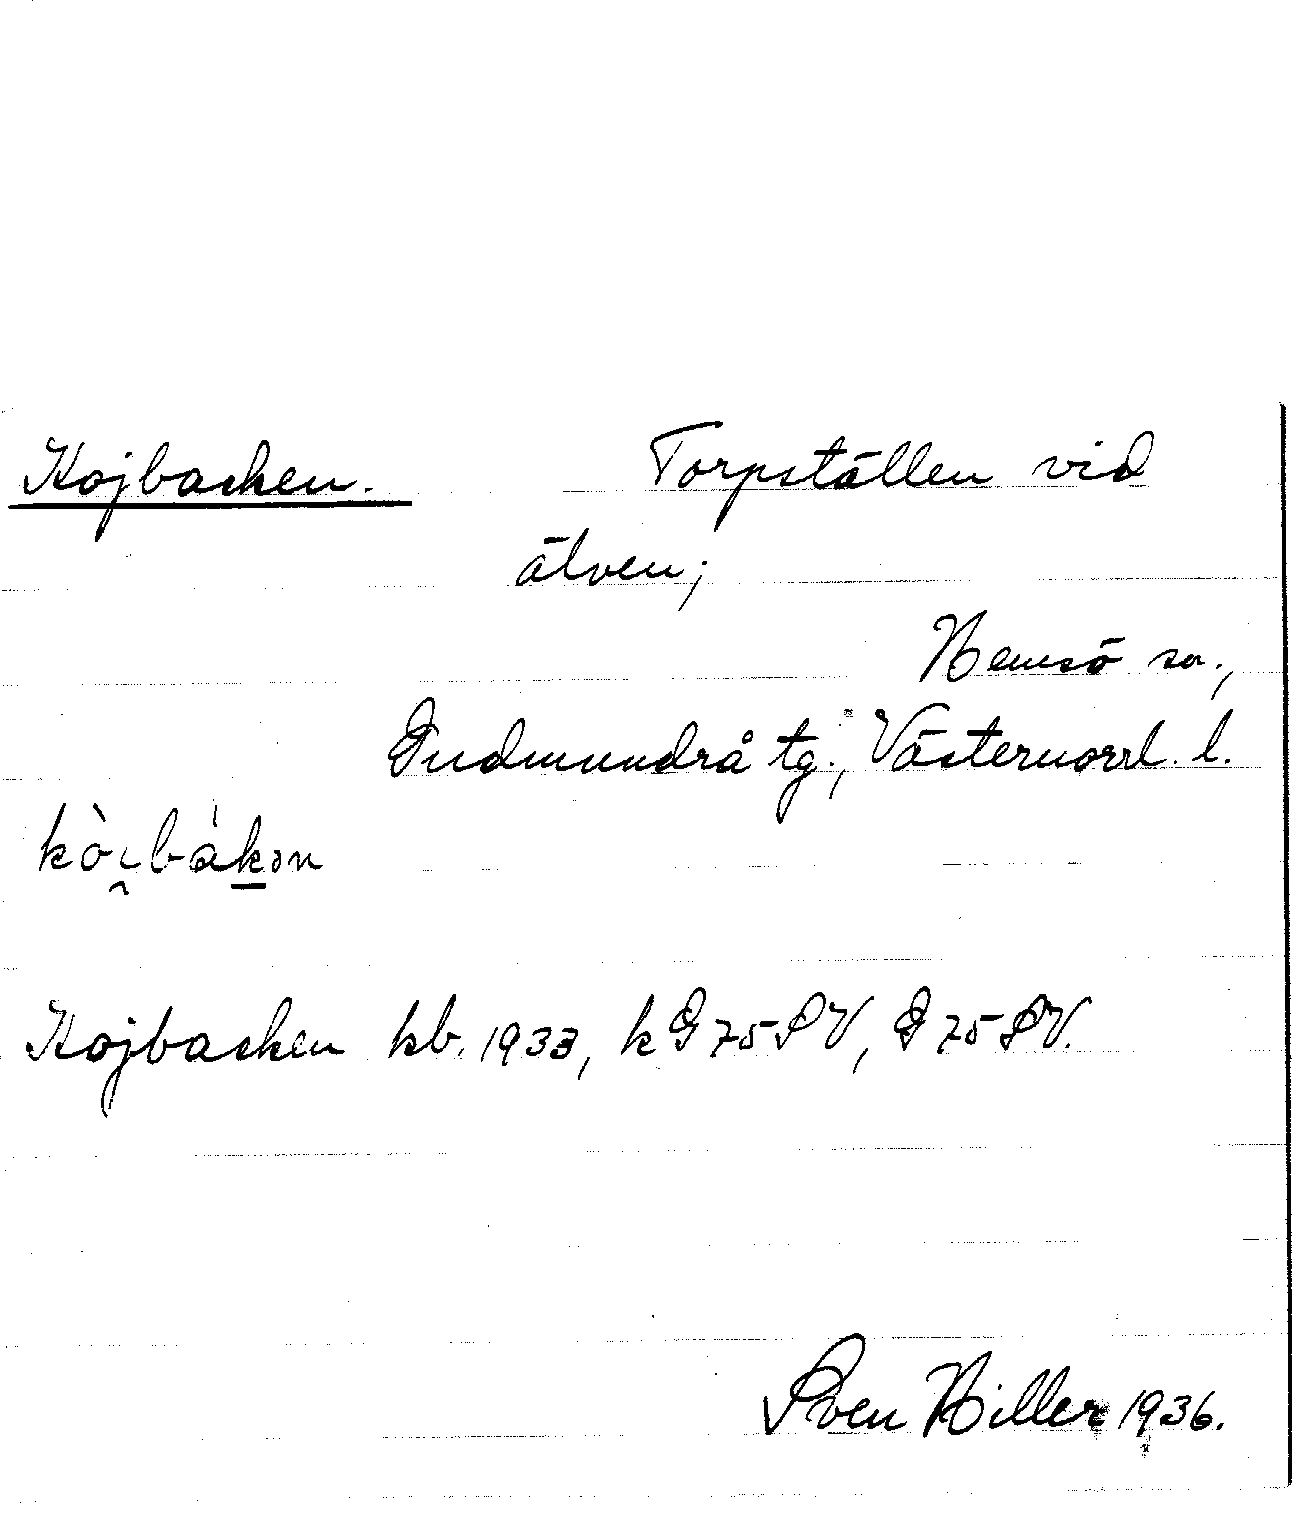 Kojbacken. Torpställen vid
älven;
Hemsö sn.,
Gudmundrå tg., Västernorrl. l.
kòi̯bákən
Kojbacken kb. 1933, k G 75 SV, G 75 SV.
Sven Hiller 1936.